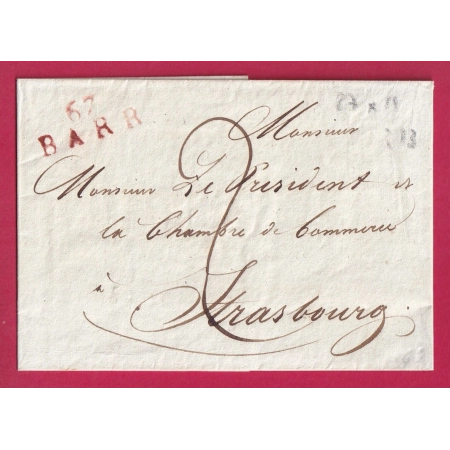 67
BARR
Monsieur
Monsieur Le President et
la Chambre de Commerce
à Strasbourg.
2